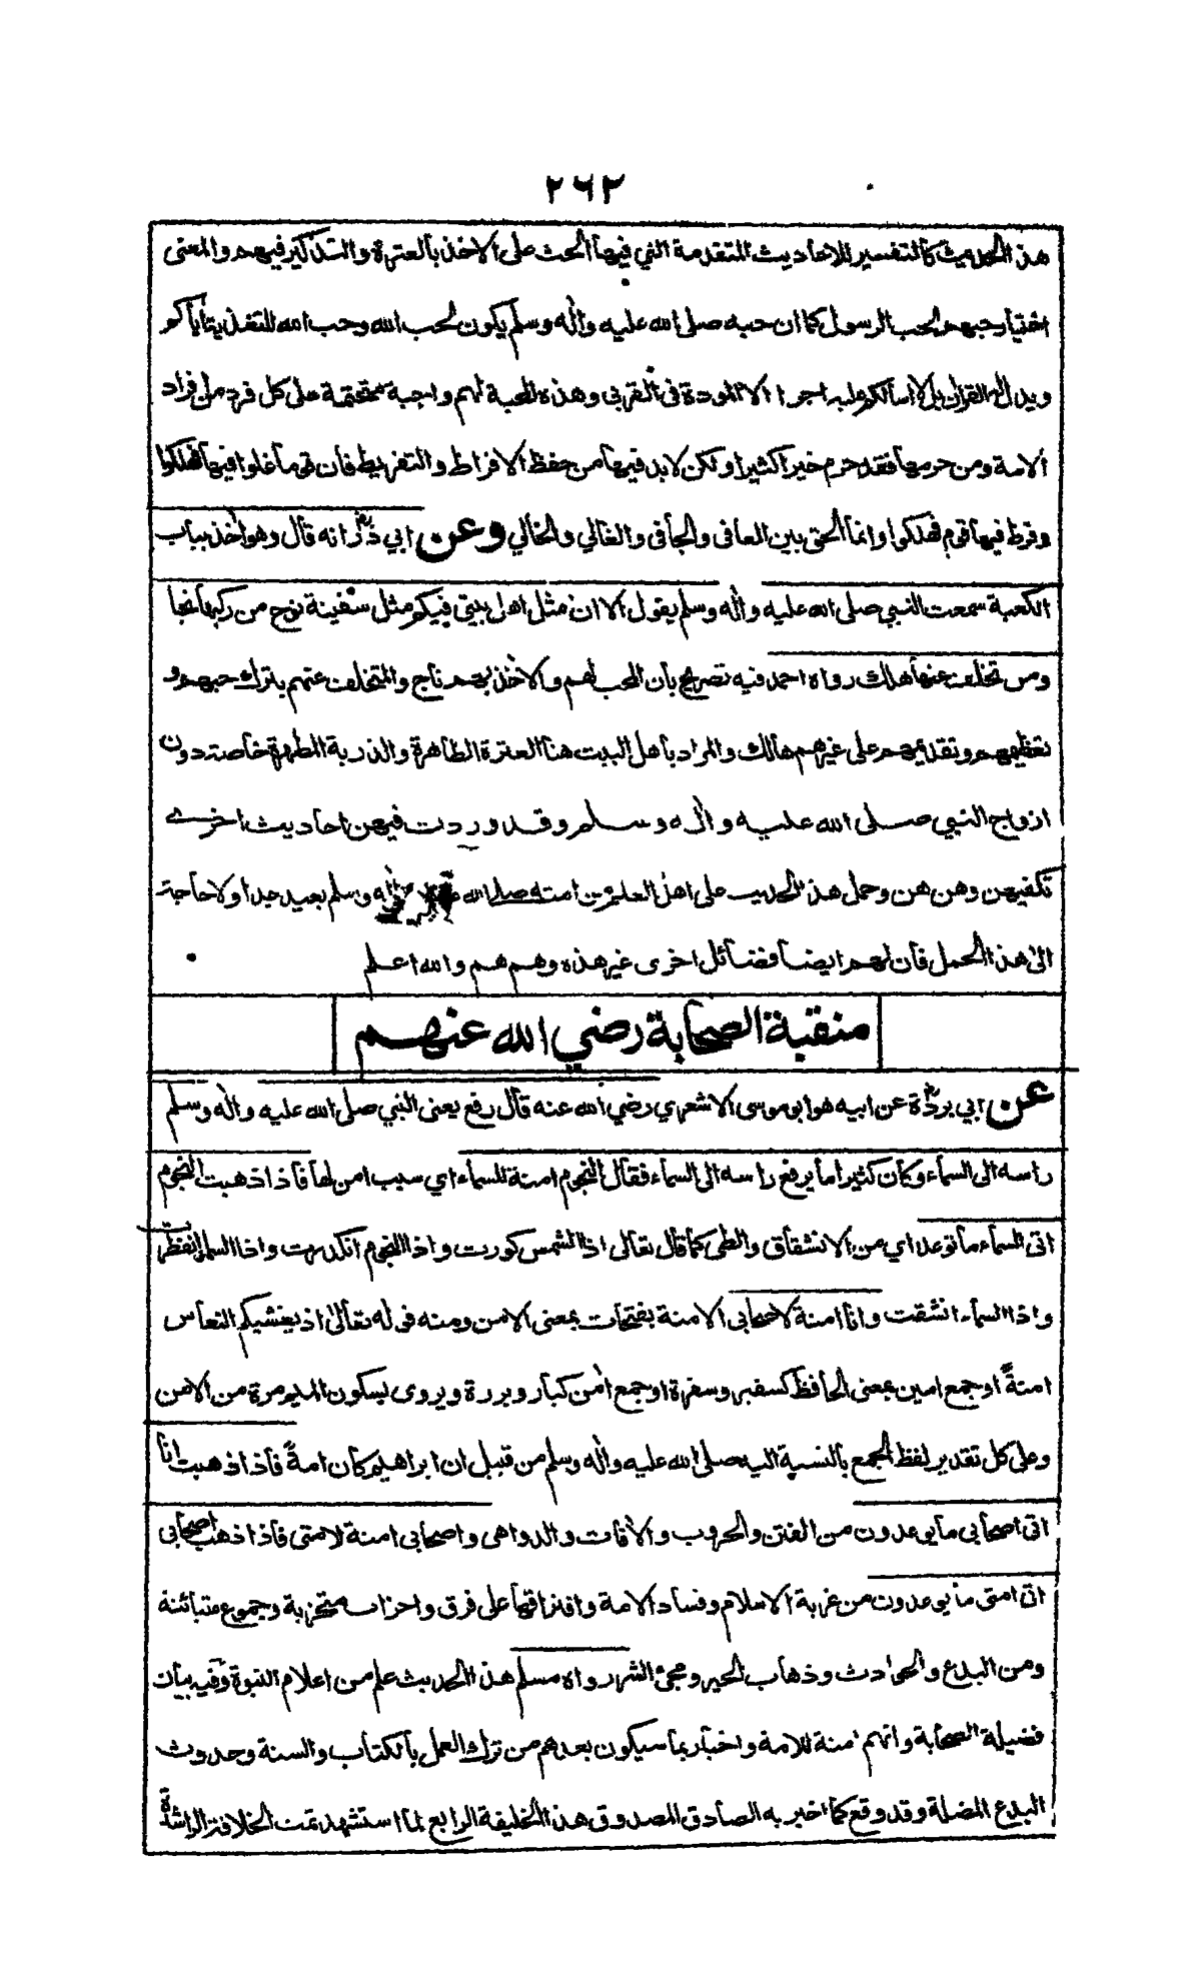 ٢٦٢
هذا الحديث كالتفسير للاحاديث المتقدمة التي فيها الحث على الاخذ بالعترة والتذكير فيهم والمعنى
اختيار حبهم لحب الرسول كما ان حبه صلى الله عليه واٰله وسلم يكون لحب الله وحب الله للتغذية اياكم
ويدل له القراٰن قل لا اسألكم عليه اجرا الا المودة فى القربى وهذه المحبة لهم واجبة متحتمة على كل فرد من افراد
الامة ومن حرمها فقد حرم خيرا كثيرا ولكن لابد فيها من حفظ الافراط والتفريط فان قوما غلوا فيها فهلكوا
وفرط فيها قوم فهلكوا وانما الحق بين العافى والجافى والغالي والخالي وعن ابي ذر رض انه قال وهو اٰخذ بباب
الكعبة سمعت النبي صلى الله عليه واٰله وسلم يقول الا ان مثل اهل بيتي فيكم مثل سفينة نوح من ركبها نجا
ومن تخلف عنها هلك رواه احمد فيه تصريح بان المحب لهم والاٰخذ بهم ناج والمتخلف عنهم بترك حبهم و
تعظيمهم وتقديمهم على غيرهم هالك والمراد باهل البيت هنا العترة الطاهرة والذرية المطهرة خاصة دون
ازواج النبي صلى الله عليه واٰله وسلم وقد وردت فيهن احاديث اخرى
تكفيهن وهن هن وحمل هذا الحديث على اهل العلم من امته صلى الله عليه واٰله وسلم بعيد جدا ولا حاجة
الى هذا الحمل فان لهم ايضا فضائل اخرى غير هذه وهم هم والله اعلم
منقبة الصحابة رضي الله عنهم
عن ابي بردة رض عن ابيه هو ابو موسى الاشعري رضي الله عنه قال رفع يعنى النبي صلى الله عليه واٰله وسلم
راسه الى السماء وكان كثيرا ما يرفع راسه الى السماء فقال النجوم امنة للسماء اي سبب امن لها فاذا ذهبت النجوم
اتى السماء ما توعد اي من الانشقاق والطى كما قال تعالى اذا الشمس كورت واذا النجوم انكدرت واذا السماء انفطرت
واذا السماء انشقت وانا امنة لاصحابي الامنة بفتحات بمعنى الامن ومنه قوله تعالىٰ اذ يغشيكم النعاس
امنةً او جمع امين بمعنى الحافظ كسفير وسفرة او جمع اٰمن كبار وبررة ويروى بسكون الميم مرة من الامن
وعلى كل تقدير لفظ الجمع بالنسبة اليه صلى الله عليه واٰله وسلم من قبيل ان ابراهيم كان امةً فاذا ذهبت انا
اتى اصحابي ما يوعدون من الفتن والحروب والاٰفات والدواهى واصحابي امنة لامتى فاذا ذهب اصحابي
اتى امتى ما يوعدون من غربة الاسلام وفساد الامة وافتراقها على فرق واحزاب متحزبة وجموع متبائنة
ومن البدع والحوادث وذهاب الخير ومجئ الشر رواه مسلم هذا الحديث علم من اعلام النبوة وفيه بيان
فضيلة الصحابة وانهم امنة للامة واخبار بما سيكون بعدهم من ترك العمل بالكتاب والسنة وحدوث
البدع المضلة وقد وقع كما اخبر به الصادق المصدوق هذا الخليفة الرابع لما استشهد تمت الخلافة الراشدة